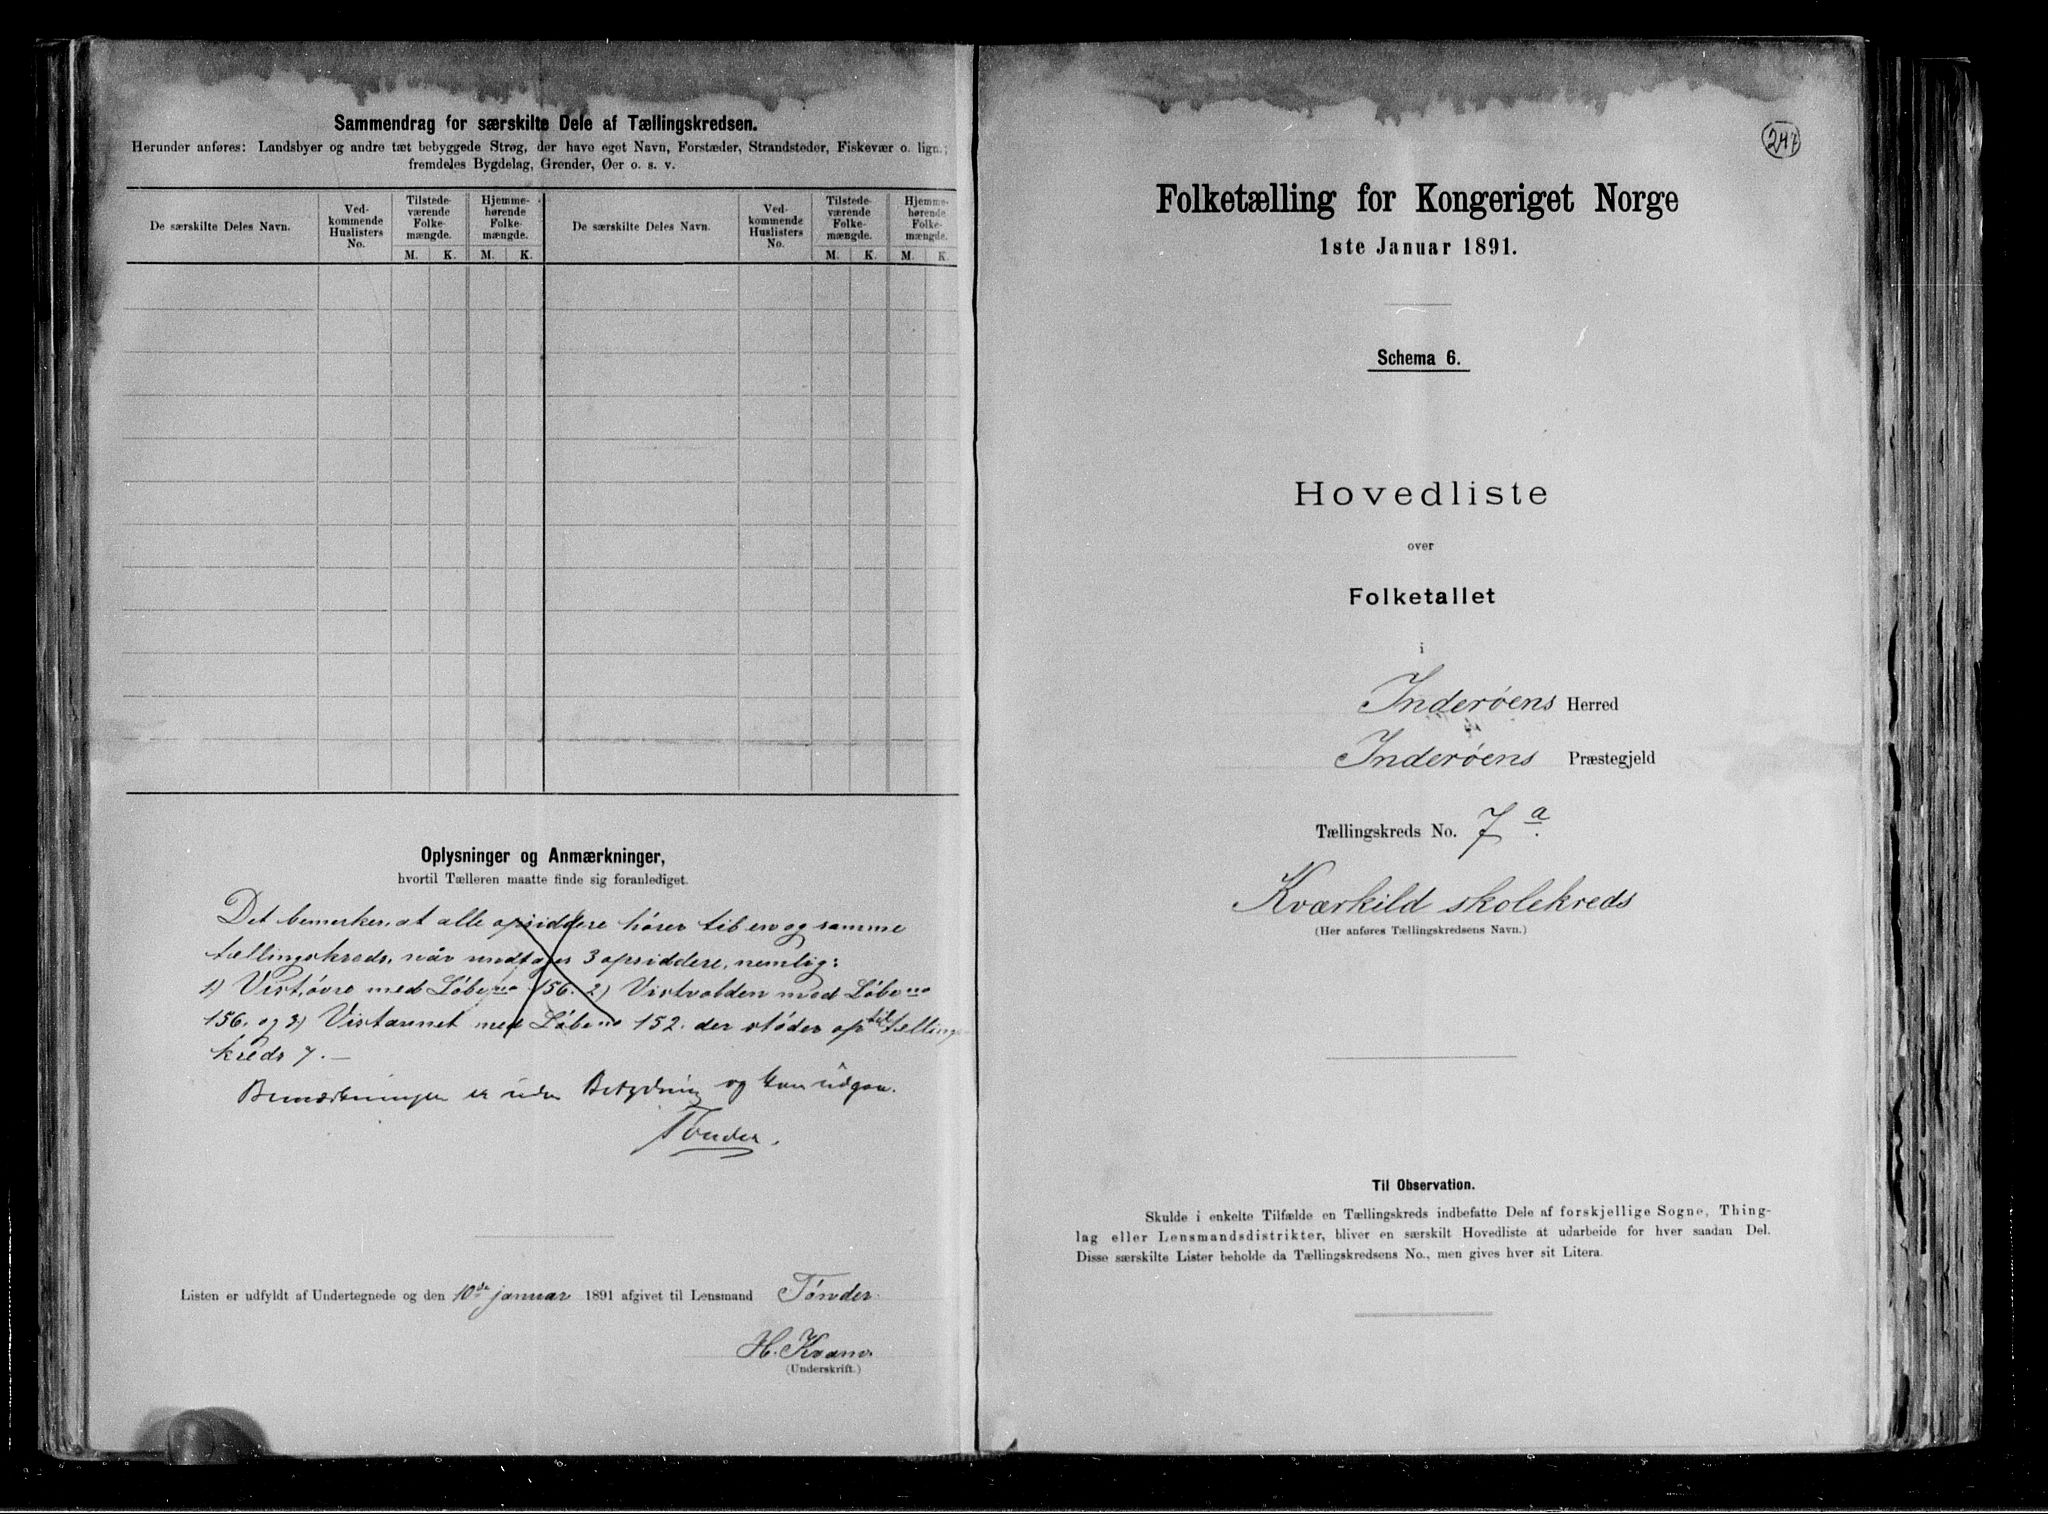 Sammendrag for særskilte Dele af Tællingskredsen.
Herunder anføres: Landsbyer og andre tæt bebyggede Strøg, der have eget Navn, Forstæder, Strandsteder, Fiskevær o. lign.;
fremdeles Bygdelag, Grender, Øer o. s. v.
De særskilte Deles Navn.
Ved-
kommende
Huslisters
No.
Tilstede-
værende
Folke-
mængde.
Hjemme-
hørende
Folke-
mængde.
De særskilte Deles Navn.
Ved-
kommende
Huslisters
No.
Tilstede-
værende
Folke-
mængde.
Hjemme-
hørende
Folke-
mængde.
M. K. M. K. M. K. M. K.
Oplysninger og Anmærkninger,
hvortil Tælleren maatte finde sig foranlediget.
Det bemerkes, at alle opsiddere hører til en og samme
tællingskreds, når undtages 3 opsiddere, nemlig:
1) Vistøvre med Løbe no 156. 2) Vistvolden med Løbe no
156. og 3) Vistaunet med Løbe no 152. der støder op til tælling
kreds 7. —
Bemærkningen er uden Betydning og kan udgaa.
Tønder.
Listen er udfyldt af Undertegnede og den 10de januar 1891 afgivet til Lensmand Tønder.
H. Kvam.
(Underskrift.)
247
Folketælling for Kongeriget Norge
1ste Januar 1891.
Schema 6.
Hovedliste
over
Folketallet
i
Inderøens Herred
Inderøens Præstegjeld
Tællingskreds No. 7 a.
Kværkild skolekreds
(Her anføres Tællingskredsens Navn.)
Til Observation.
Skulde i enkelte Tilfælde en Tællingskreds indbefatte Dele af forskjellige Sogne, Thing-
lag eller Lensmandsdistrikter, bliver en særskilt Hovedliste at udarbeide for hver saadan Del.
Disse særskilte Lister beholde da Tællingskredsens No., men gives hver sit Litera.